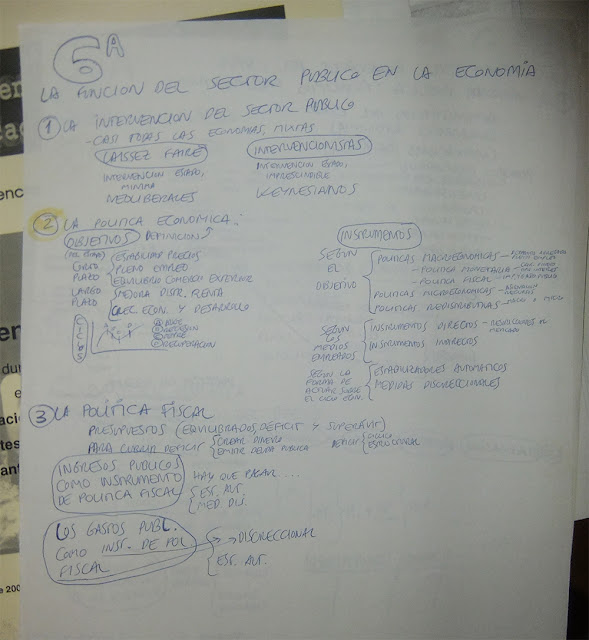 6A
LA FUNCION DEL SECTOR PUBLICO EN LA ECONOMÍA
① LA INTERVENCION DEL SECTOR PUBLICO
- CASI TODAS LAS ECONOMIAS, MIXTAS
LAISSEZ FAIRE
INTERVENCION ESTADO,
MINIMA
NEOLIBERALES
INTERVENCIONISTAS
INTERVENCION ESTADO,
IMPRESCINDIBLE
KEYNESIANOS
② LA POLITICA ECONOMICA:
OBJETIVOS DEFINICION
CORTO
PLAZO
ESTABILIDAD PRECIOS
PLENO EMPLEO
EQUILIBRIO COMERCIO EXTERIOR
LARGO
PLAZO
MEJORA DISTR. RENTA
CREC. ECON. Y DESARROLLO
CICLOS
RECUPERACION
INSTRUMENTOS
SEGÚN
EL
OBJETIVO
POLITICAS MACROECONOMICAS
- POLITICA MONETARIA
- POLITICA FISCAL
POLITICAS MICROECONOMICAS
POLITICAS REDISTRIBUTIVAS
SEGÚN
LOS
MEDIOS
EMPLEADOS
INSTRUMENTOS DIRECTOS
INSTRUMENTOS INDIRECTOS
SEGÚN LA
FORMA DE
ACTUAR SOBRE
EL CICLO ECON.
ESTABILIZADORES AUTOMATICOS
MEDIDAS DISCRECIONALES
③ LA POLÍTICA FISCAL
PRESUPUESTOS (EQUILIBRADOS, DÉFICIT Y SUPERÁVIT)
PARA CUBRIR DÉFICIT CREAR DINERO
EMITIR DEUDA PUBLICA
DÉFICIT CICLICO
ESTRUCTURAL
INGRESOS PUBLICOS
COMO INSTRUMENTO
DE POLITICA FISCAL
HAY QUE PAGAR ...
EST. AUT.
MED. DIS.
LOS GASTOS PUBL.
COMO INST. DE POL
FISCAL
DISCRECIONAL
EST. AUT.